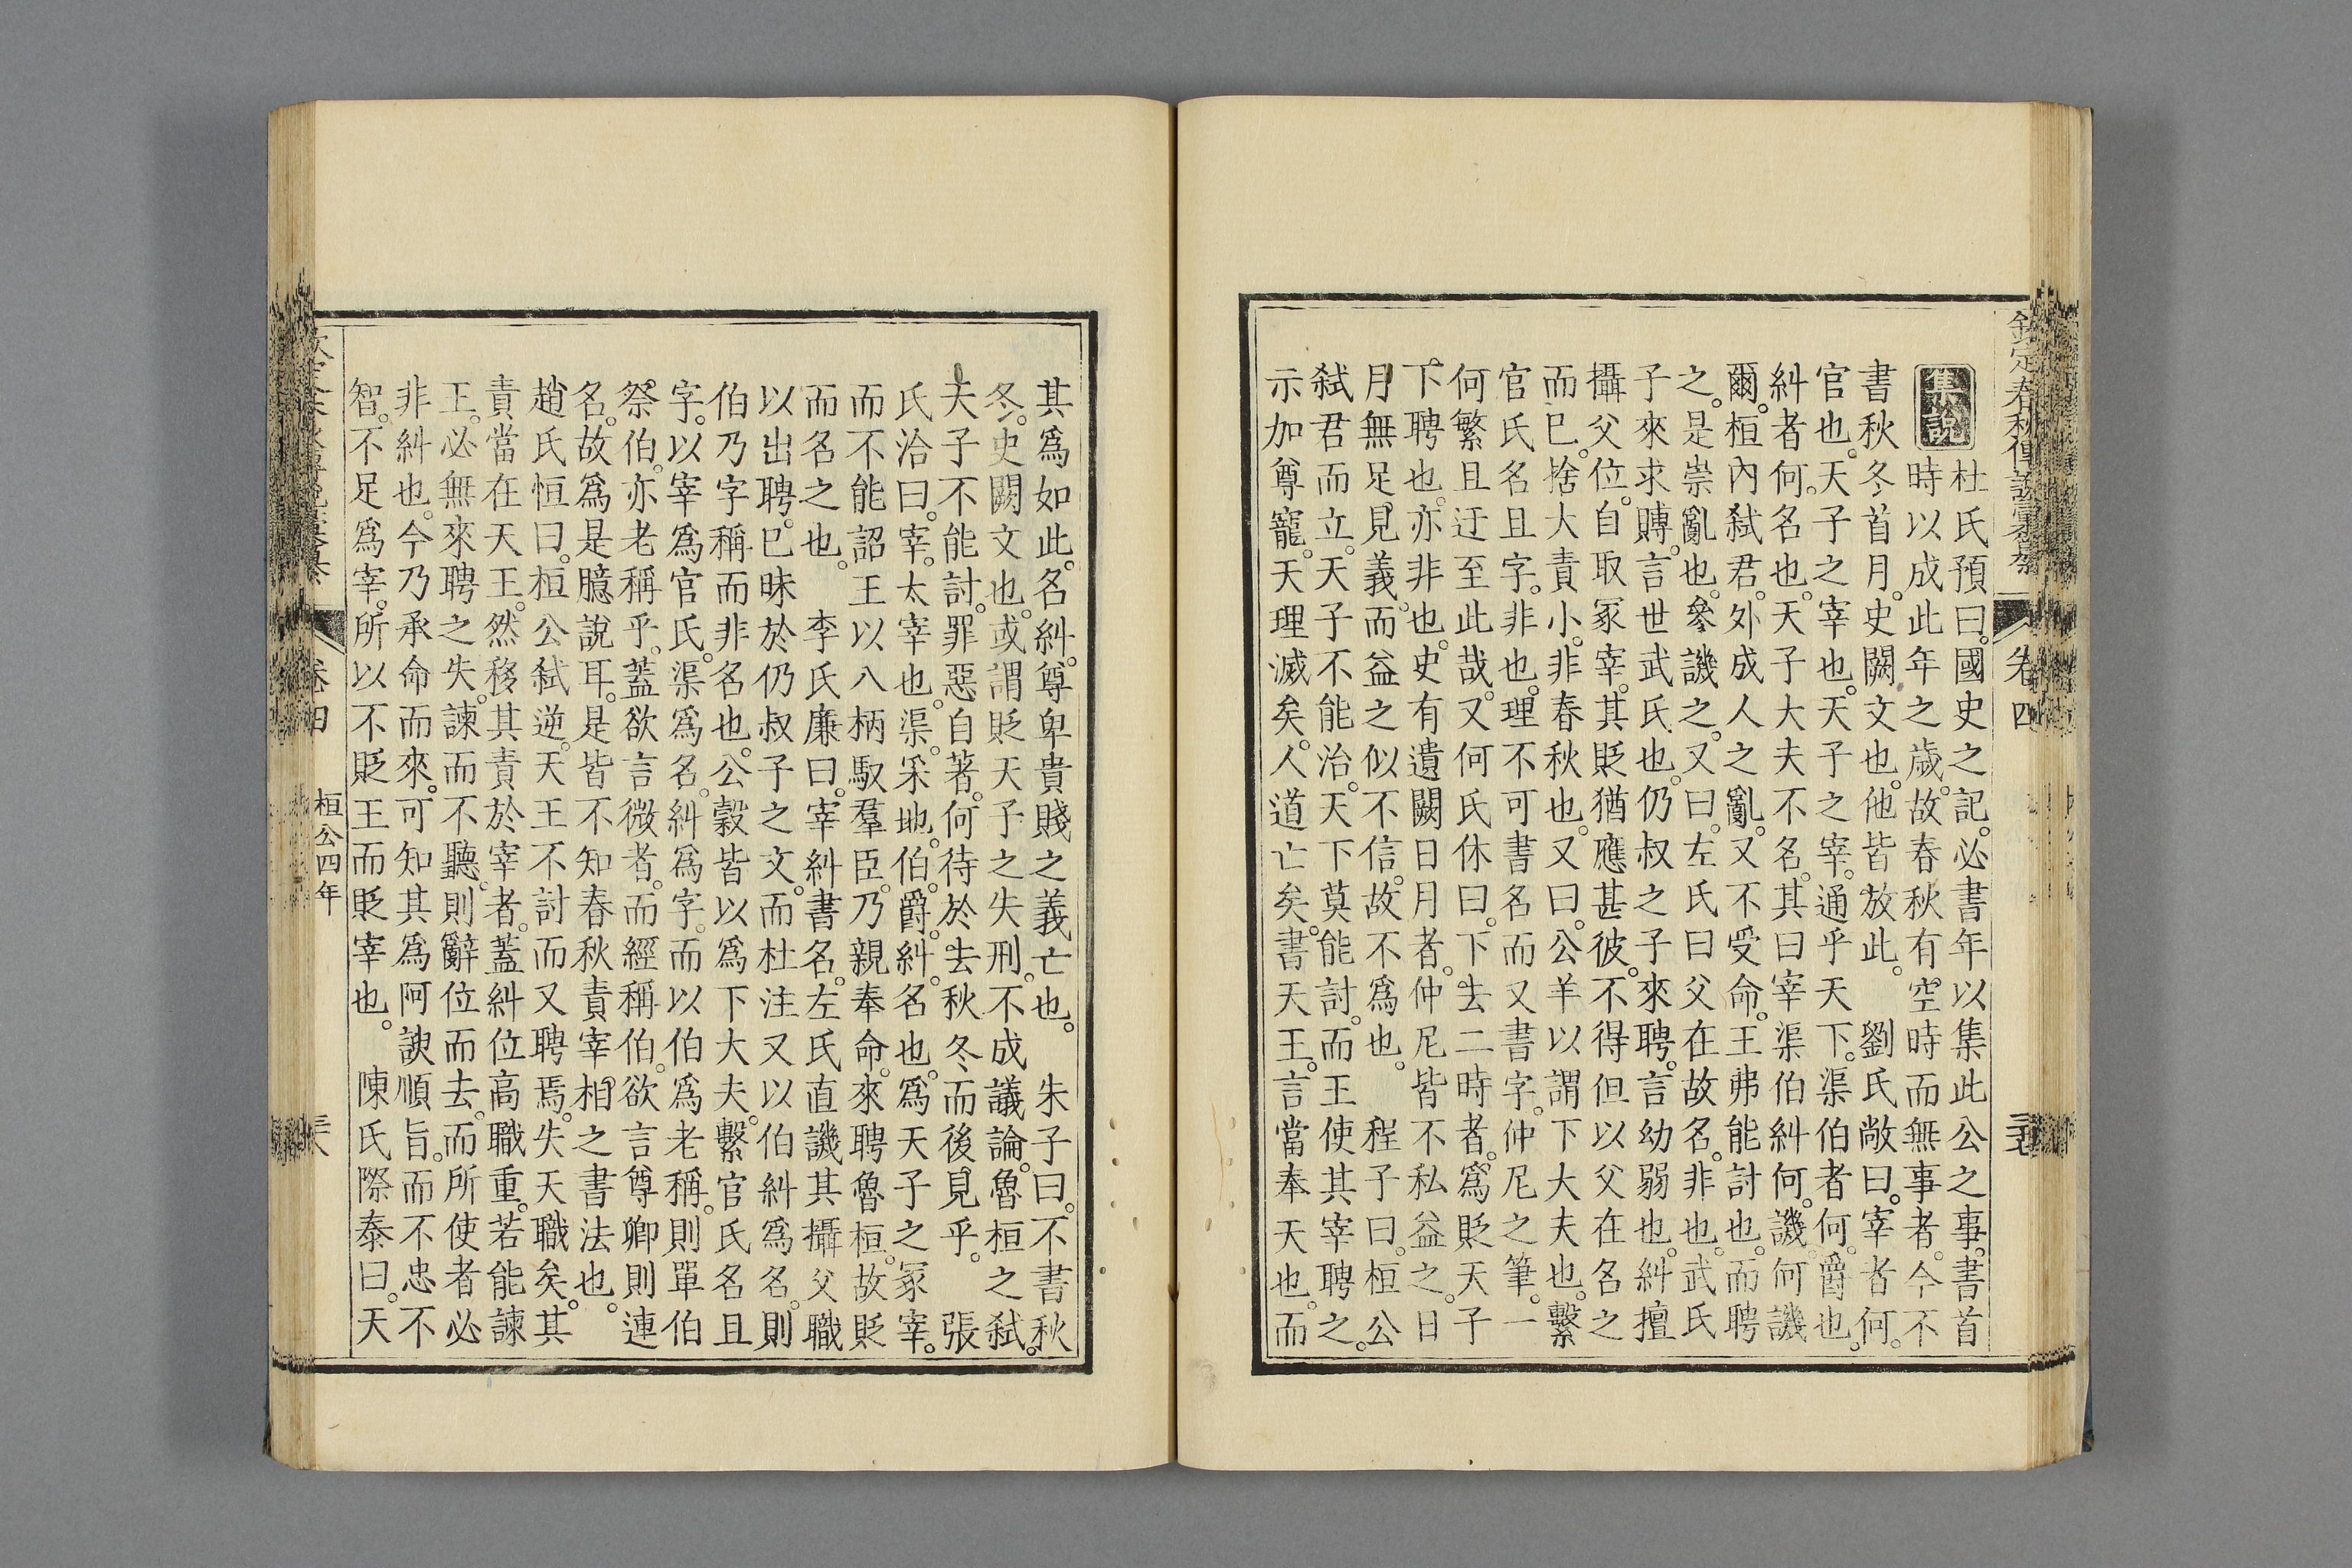 欽定春秋傳說彙纂 卷四
集說
杜氏預曰。國史之記。必書年以集此公之事。書首
時以成此年之歲。故春秋有空時而無事者。今不
書秋冬首月。史闕文也。他皆放此。 劉氏敞曰。宰者何。
官也。天子之宰也。天子之宰。通乎天下。渠伯者何。爵也。
糾者何。名也。天子大夫不名。其曰宰渠伯糾何。譏何譏
爾。桓內弑君。外成人之亂。又不受命。王弗能討也。而聘
之。是崇亂也。參譏之。又曰。左氏曰父在故名。非也。武氏
子來求賻。言世武氏也。仍叔之子來聘。言幼弱也。糾擅
攝父位。自取冢宰。其貶猶應甚彼。不得但以父在名之
而已。捨大責小。非春秋也。又曰。公羊以謂下大夫也。繫
官氏名且字。非也。理不可書名而又書字。仲尼之筆。一
何繁且迂至此哉。又何氏休曰。下去二時者。爲貶天子
下聘也。亦非也。史有遺闕日月者。仲尼皆不私益之。日
月無足見義。而益之似不信。故不爲也。 程子曰。桓公
弑君而立。天子不能治。天下莫能討。而王使其宰聘之。
示加尊寵。天理滅矣。人道亡矣。書天王。言當奉天也。而
其爲如此。名糾。尊卑貴賤之義亡也。 朱子曰。不書秋
冬。史闕文也。或謂貶天子之失刑。不成議論。魯桓之弑。
夫子不能討。罪惡自著。何待於去秋冬而後見乎。 張
氏洽曰。宰。太宰也。渠。采地。伯。爵。糾。名也。爲天子之冢宰。
而不能詔王以八柄馭羣臣。乃親奉命。來聘魯桓。故貶
而名之也。 李氏廉曰。宰糾書名。左氏直譏其攝父職
以出聘。已昧於仍叔子之文。而杜注又以伯糾爲名。則
伯乃字稱而非名也。公穀皆以爲下大夫。繫官氏名且
字。以宰爲官氏。渠爲名。糾爲字。而以伯爲老稱。則單伯
祭伯。亦老稱乎。蓋欲言微者。而經稱伯。欲言尊卿則連
名。故爲是臆說耳。是皆不知春秋責宰相之書法也。
趙氏恒曰。桓公弑逆。天王不討而又聘焉。失天職矣。其
責當在天王。然移其責於宰者。蓋糾位高職重。若能諫
王。必無來聘之失。諫而不聽。則辭位而去。而所使者必
非糾也。今乃承命而來。可知其爲阿諛順旨。而不忠不
智。不足爲宰。所以不貶王而貶宰也。 陳氏際泰曰。天
卷四 桓公四年